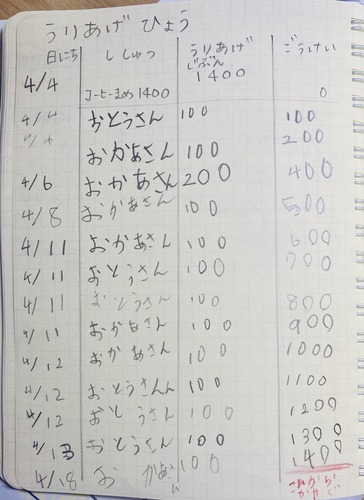 うりあげ ひょう
日にち ししゅつ うりあげ ごうけい
じぶん
4/4 1400
コーヒーまめ 1400 0
4/4 おとうさん 100 100
4/4 おかあさん 100 200
4/6 おかあさん 200 400
4/8 おかあさん 100 500
4/11 おかあさん 100 600
4/11 おとうさん 100 700
4/11 おとうさん 100 800
4/11 おかあさん 100 900
4/12 おかあさん 100 1000
4/12 おとうさん 100 1100
4/12 おとうさん 100 1200
4/13 おとうさん 100 1300
4/18 おかあさん 100 1400
これから